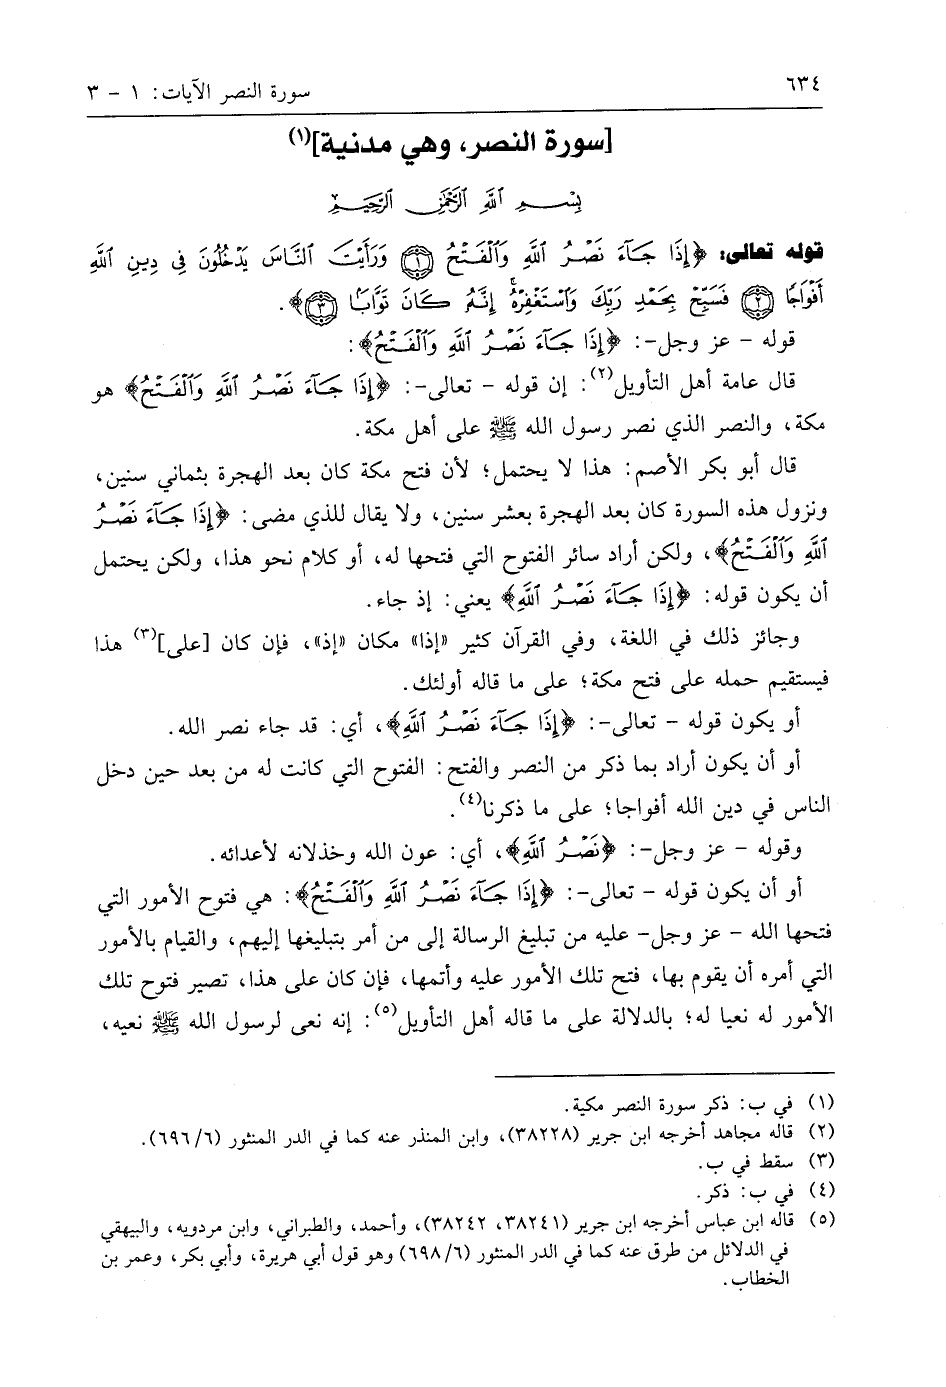 ٦٣٤
سورة النصر الآيات: ١ - ٣
[سورة النصر، وهي مدنية](١)
بِسْمِ ٱللَّهِ ٱلرَّحْمَٰنِ ٱلرَّحِيمِ
قوله تعالى: ﴿إِذَا جَآءَ نَصْرُ ٱللَّهِ وَٱلْفَتْحُ ١ وَرَأَيْتَ ٱلنَّاسَ يَدْخُلُونَ فِى دِينِ ٱللَّهِ
أَفْوَاجًا ٢ فَسَبِّحْ بِحَمْدِ رَبِّكَ وَٱسْتَغْفِرْهُ ۚ إِنَّهُۥ كَانَ تَوَّابًۢا ٣﴾.
قوله - عز وجل-: ﴿إِذَا جَآءَ نَصْرُ ٱللَّهِ وَٱلْفَتْحُ﴾:
قال عامة أهل التأويل(٢): إن قوله - تعالى-: ﴿إِذَا جَآءَ نَصْرُ ٱللَّهِ وَٱلْفَتْحُ﴾ هو
مكة، والنصر الذي نصر رسول الله ﷺ على أهل مكة.
قال أبو بكر الأصم: هذا لا يحتمل؛ لأن فتح مكة كان بعد الهجرة بثماني سنين،
ونزول هذه السورة كان بعد الهجرة بعشر سنين، ولا يقال للذي مضى: ﴿إِذَا جَآءَ نَصْرُ
ٱللَّهِ وَٱلْفَتْحُ﴾، ولكن أراد سائر الفتوح التي فتحها له، أو كلام نحو هذا، ولكن يحتمل
أن يكون قوله: ﴿إِذَا جَآءَ نَصْرُ ٱللَّهِ﴾ يعني: إذ جاء.
وجائز ذلك في اللغة، وفي القرآن كثير «إذا» مكان «إذ»، فإن كان [على](٣) هذا
فيستقيم حمله على فتح مكة؛ على ما قاله أولئك.
أو يكون قوله - تعالى-: ﴿إِذَا جَآءَ نَصْرُ ٱللَّهِ﴾، أي: قد جاء نصر الله.
أو أن يكون أراد بما ذكر من النصر والفتح: الفتوح التي كانت له من بعد حين دخل
الناس في دين الله أفواجا؛ على ما ذكرنا(٤).
وقوله - عز وجل-: ﴿نَصْرُ ٱللَّهِ﴾، أي: عون الله وخذلانه لأعدائه.
أو أن يكون قوله - تعالى-: ﴿إِذَا جَآءَ نَصْرُ ٱللَّهِ وَٱلْفَتْحُ﴾: هي فتوح الأمور التي
فتحها الله - عز وجل- عليه من تبليغ الرسالة إلى من أمر بتبليغها إليهم، والقيام بالأمور
التي أمره أن يقوم بها، فتح تلك الأمور عليه وأتمها، فإن كان على هذا، تصير فتوح تلك
الأمور له نعيا له؛ بالدلالة على ما قاله أهل التأويل(٥): إنه نعى لرسول الله ﷺ نعيه،
(١) في ب: ذكر سورة النصر مكية.
(٢) قاله مجاهد أخرجه ابن جرير (٣٨٢٢٨)، وابن المنذر عنه كما في الدر المنثور (٦/ ٦٩٦).
(٣) سقط في ب.
(٤) في ب: ذكر.
(٥) قاله ابن عباس أخرجه ابن جرير (٣٨٢٤١، ٣٨٢٤٢)، وأحمد، والطبراني، وابن مردويه، والبيهقي
في الدلائل من طرق عنه كما في الدر المنثور (٦/ ٦٩٨) وهو قول أبي هريرة، وأبي بكر، وعمر بن
الخطاب.